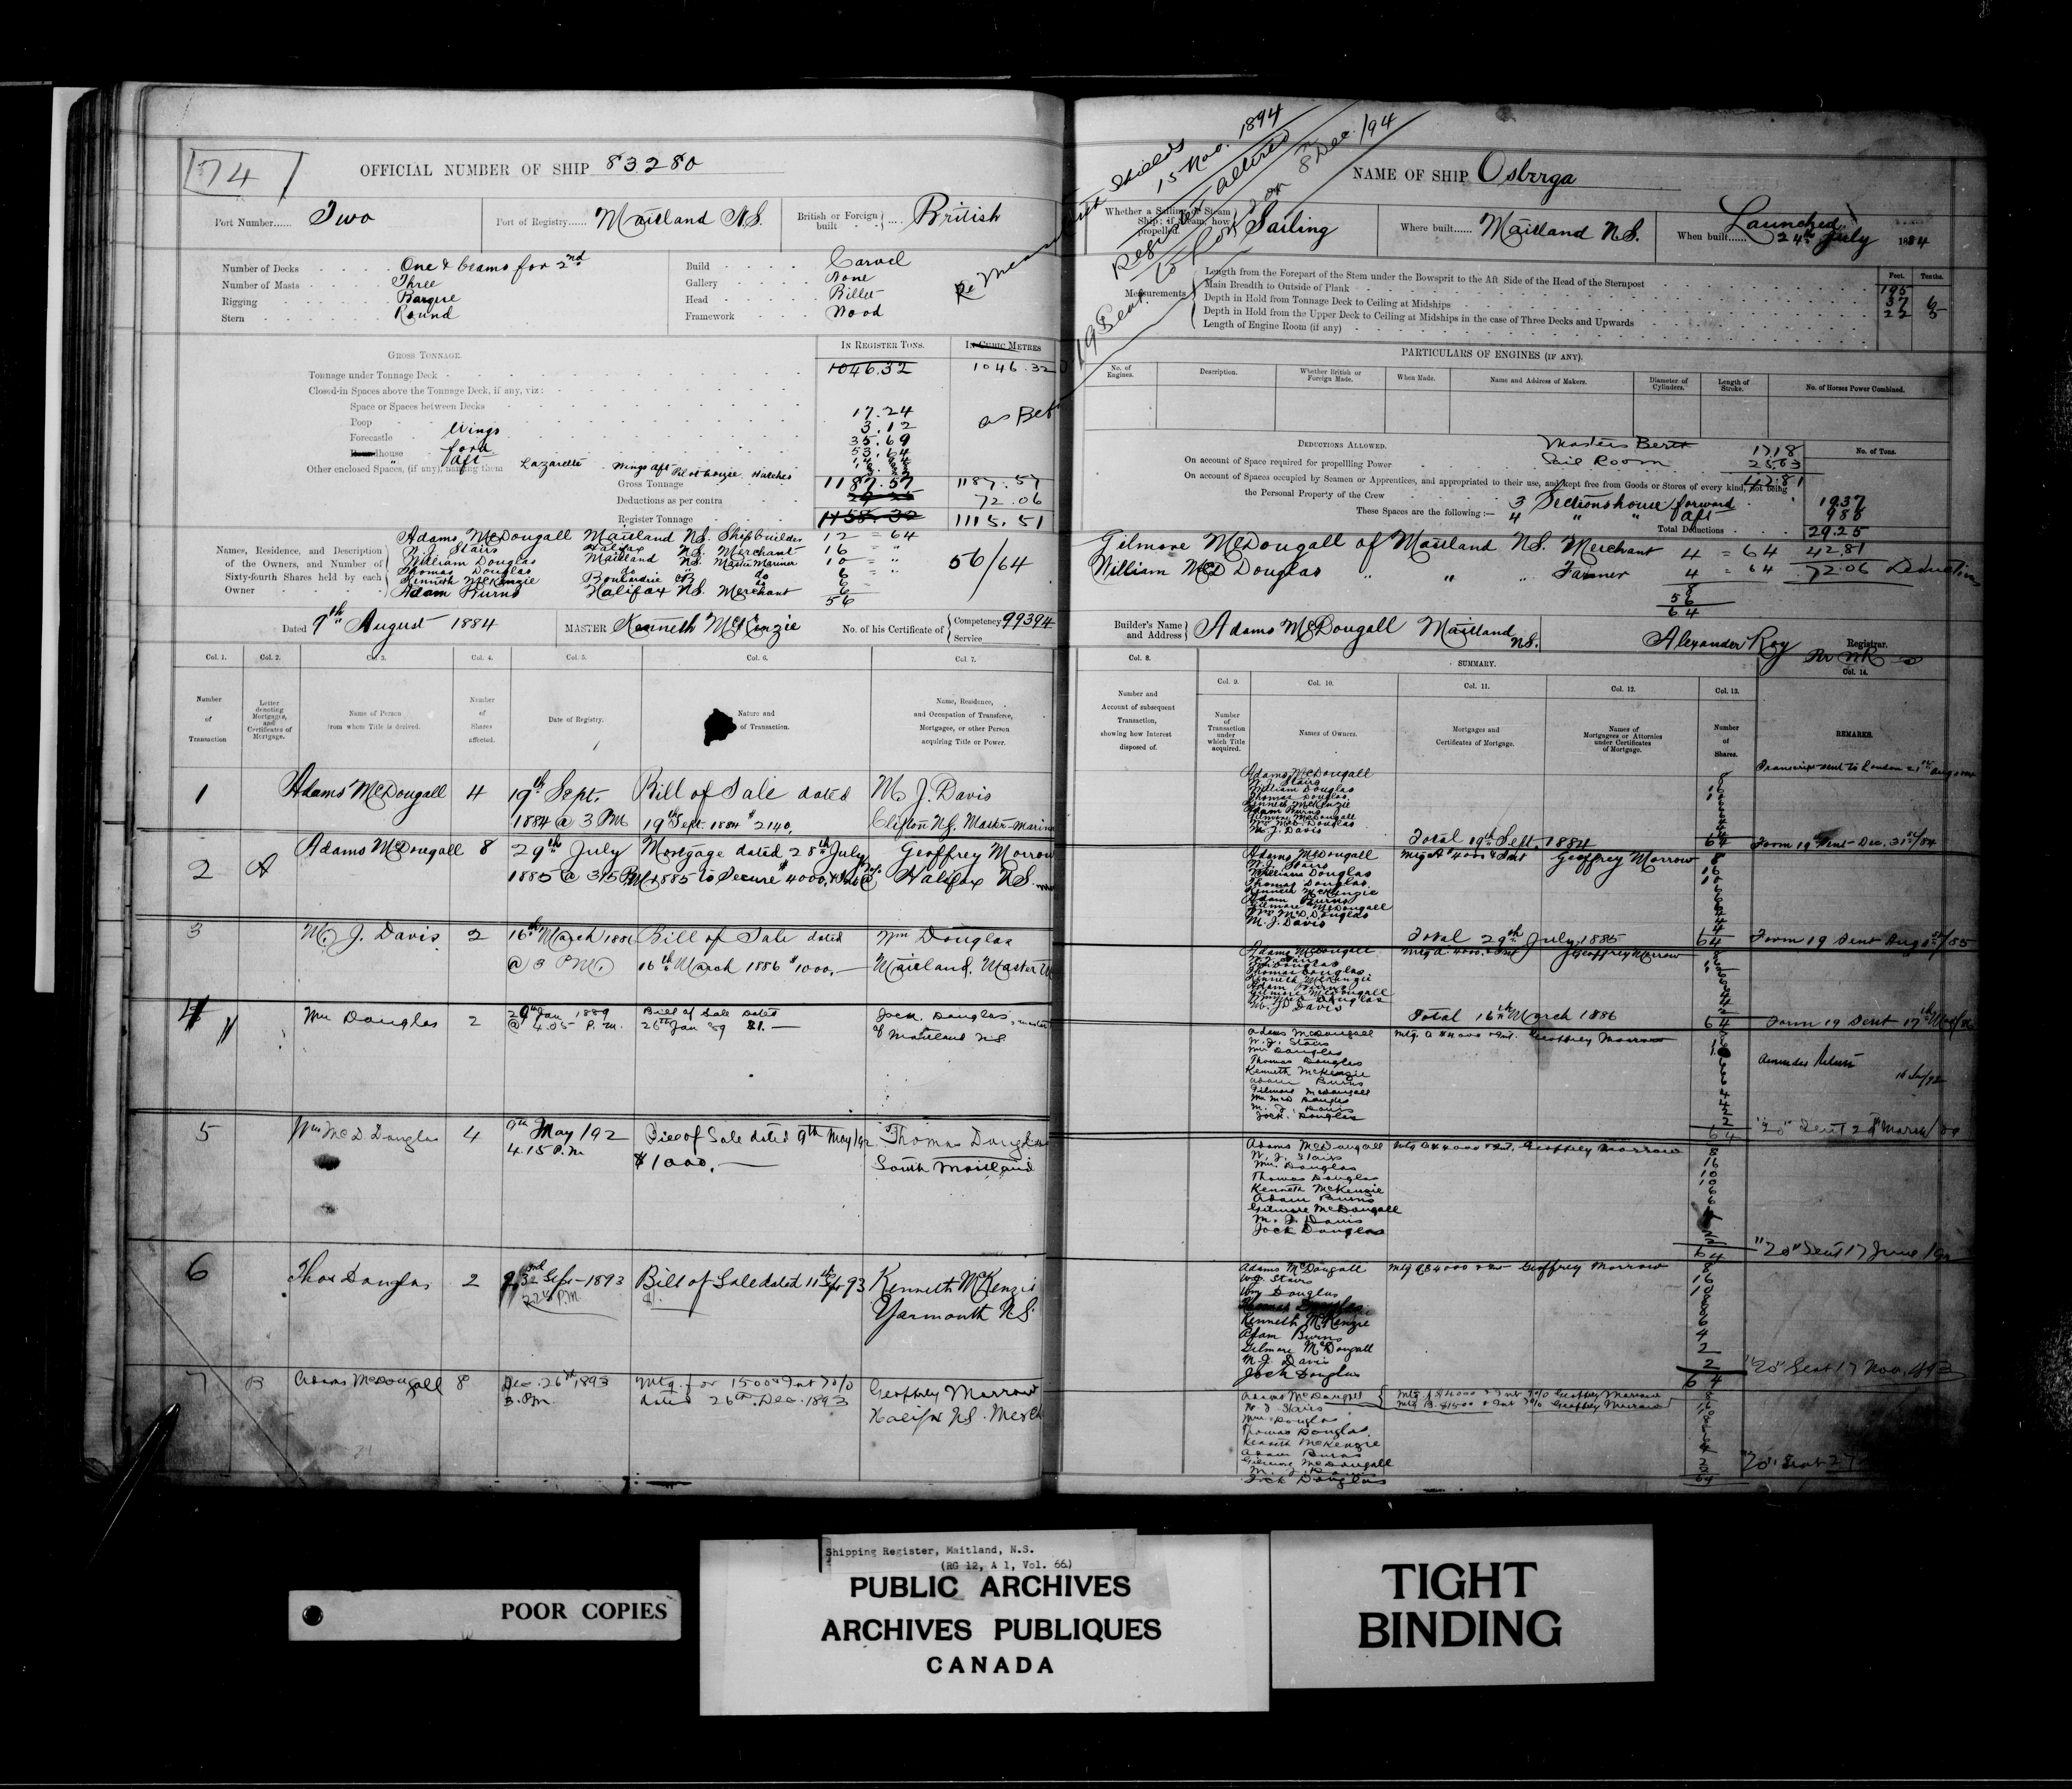 174
OFFICIAL NUMBER OF SHIP 83280
Port Number...... Two
Port of Registry...... Maitland N.S.
British or Foreign built .... British
Number of Decks One & beams for 2nd
Number of Masts Three
Rigging Barque
Stern Round
Build Carvel
Gallery None
Head Billet
Framework Wood
GROSS TONNAGE.
IN REGISTER TONS.
IN CUBIC METRES
Tonnage under Tonnage Deck 1046.32 1046.32
Closed-in Spaces above the Tonnage Deck, if any, viz:
Space or Spaces between Decks 17.24
Poop 3.12
Forecastle Wings 35.69
house ford 53.64
Aft
Other enclosed Spaces, (if any) naming them Lazarette Wings aft Pilothouse Hatches
Gross Tonnage 1187.57 1187.57
Deductions as per contra 72.06
Register Tonnage 1158.32 1115.51
Names, Residence, and Description of the Owners, and Number of Sixty-fourth Shares held by each Owner
Adams McDougall Maitland N.S. Shipbuilder 12 = 64
W. J. Stairs Halifax N.S. Merchant 16 = "
William Douglas Maitland N.S. Master Mariner 10 = "
Thomas Douglas do 6
Kenneth McKenzie Boularderie CB do 6
Adam Burns Halifax N.S. Merchant 6
56
56/64
Dated 9th August 1884
MASTER Kenneth McKenzie
No. of his Certificate of Competency 99394
Service
Col. 1. Col. 2. Col. 3. Col. 4. Col. 5. Col. 6. Col. 7.
Number of Transaction
Letter denoting Mortgages, and Certificates of Mortgage.
Name of Person from whose Title is derived.
Number of Shares affected.
Date of Registry.
Nature and of Transaction.
Name, Residence, and Occupation of Transferee, Mortgagee, or other Person acquiring Title or Power.
1 Adams McDougall 4 19th Sept. 1884 @ 3 PM Bill of Sale dated 19th Sept. 1884 $2140. M. J. Davis Clifton N.S. Master-Mariner
2 A Adams McDougall 8 29th July 1885 @ 3.15 PM Mortgage dated 28th July 1885 to Secure $4000, & Int @ Geoffrey Morrow Halifax N.S.
3 M. J. Davis 2 16th March 1886 @ 3 PM. Bill of Sale dated 16th March 1886 $1000.— Wm Douglas Maitland, Master
4 Wm Douglas 2 Jan 1889 @ 4.05 P.M. Bill of Sale dated 26th Jan 89 $1.— Jock Douglas of Maitland N.S.
5 Wm McD Douglas 4 9th May /92 4.15 P.M Bill of Sale dated 9th May /92 $1000.— Thomas Douglas South Maitland
6 Thos Douglas 2 Sept - 1893 P.M. Bill of Sale dated 11th 93 $1. Kenneth McKenzie Yarmouth N.S
7 B Adams McDougall 8 Dec. 26th, 1893 3. Pm Mtg. for 1500 & Int 7% dated 26th. Dec. 1893 Geoffrey Morrow Halifax N.S. Merch
Shields 15 Nov. 1894
Register altered
8th Dec. /94
NAME OF SHIP Osberga
Whether a Sailing or Steam Ship; if Steam, how propelled. Sailing
Where built...... Maitland N.S.
When built...... Launched 24th July 1884
Feet. Tenths.
Measurements
Length from the Forepart of the Stem under the Bowsprit to the Aft Side of the Head of the Sternpost 195
Main Breadth to Outside of Plank 37 6
Depth in Hold from Tonnage Deck to Ceiling at Midships 22 5
Depth in Hold from the Upper Deck to Ceiling at Midships in the case of Three Decks and Upwards
Length of Engine Room (if any)
PARTICULARS OF ENGINES (IF ANY).
No. of Engines.
Description.
Whether British or Foreign Made.
When Made.
Name and Address of Makers.
Diameter of Cylinders.
Length of Stroke.
No. of Horses Power Combined.
DEDUCTIONS ALLOWED. Masters Berth 17.18
No. of Tons.
On account of Space required for propelling Power Sail Room 25.63
On account of Spaces occupied by Seamen or Apprentices, and appropriated to their use, and kept free from Goods or Stores of every kind, not being the Personal Property of the Crew 42.81
These Spaces are the following:— 3 Sections house forward 19.37
4 " " Aft 9.88
Total Deductions 29.25
42.81
72.06 Deductions
Gilmore McDougall of Maitland N.S. Merchant 4 = 64
William McD Douglas " " " Farmer 4 = 64
8
56
64
Builder's Name and Address Adams McDougall Maitland N.S.
Alexander Roy Registrar.
Col. 8. SUMMARY. Col. 14.
Col. 9. Col. 10. Col. 11. Col. 12. Col. 13.
Number and Account of subsequent Transaction, showing how Interest disposed of.
Number of Transaction under which Title acquired.
Names of Owners.
Mortgages and Certificates of Mortgage.
Names of Mortgagees or Attornies under Certificates of Mortgage.
Number of Shares.
REMARKS.
Transcript sent to London 21st Aug
Adams McDougall 8
W. J. Stairs 16
William Douglas 10
Thomas Douglas 6
Kenneth McKenzie 6
Adam Burns 6
Gilmore McDougall 4
Wm McD. Douglas 4
M. J. Davis 4
Total 19th Sept. 1884 64 Form 19 Sent Dec. 31st/84
Adams McDougall Mtg A $4000 & Int Geoffrey Morrow 8
W. J. Stairs 16
William Douglas 10
Thomas Douglas 6
Kenneth McKenzie 6
Adam Burns 6
Gilmore McDougall 4
Wm McD. Douglas 4
M. J. Davis 4
Total 29th July, 1885 64 Form 19 Sent Aug /85
Adams McDougall Mtg A 4000. & Int Geoffrey Morrow
Wm Douglas
Thomas Douglas
Kenneth McKenzie
Adam Burns
Gilmore McDougall
Wm McD Douglas
M. J. Davis
Total 16th March 1886 64 Form 19 Sent 17th
Adams McDougall Mtg A $4000 & Int. Geoffrey Morrow
W. J. Stairs
Wm Douglas
Thomas Douglas
Kenneth McKenzie
Adam Burns
Gilmore McDougall
Wm McD Douglas
M. J. Davis
Jock Douglas
64
"20" Sent 28 March/89
Adams McDougall Mtg A $4000 & Int. Geoffrey Morrow 8
W. J. Stairs 16
Wm Douglas 10
Thomas Douglas 10
Kenneth McKenzie 6
Adam Burns 6
Gilmore McDougall 4
M. J. Davis 2
Jock Douglas 2
64 "20" Sent 17 June
Adams McDougall Mtg A $4000 Geoffrey Morrow 8
W J Stairs 16
Wm Douglas 10
Thomas Douglas 8
Kenneth McKenzie 8
Adam Burns 6
Gilmore McDougall 4
M. J. Davis 2
Jock Douglas 2
64 "20" Sent 17 Nov. 93
Adams McDougall Mtg A $4000 & Int 7% Geoffrey Morrow
Mtg B. $1500 & Int 7% Geoffrey Morrow
W J Stairs
Wm Douglas
Thomas Douglas
Kenneth McKenzie
Adam Burns
Gilmore McDougall
M. J. Davis
Jock Douglas
64 "20" Sent
POOR COPIES
Shipping Register, Maitland, N.S.
(RG 12, A 1, Vol. 66)
PUBLIC ARCHIVES
ARCHIVES PUBLIQUES
CANADA
TIGHT
BINDING